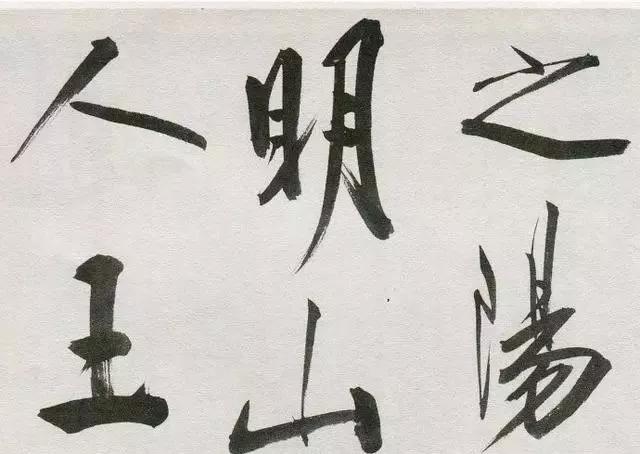 之陽
明山
人王